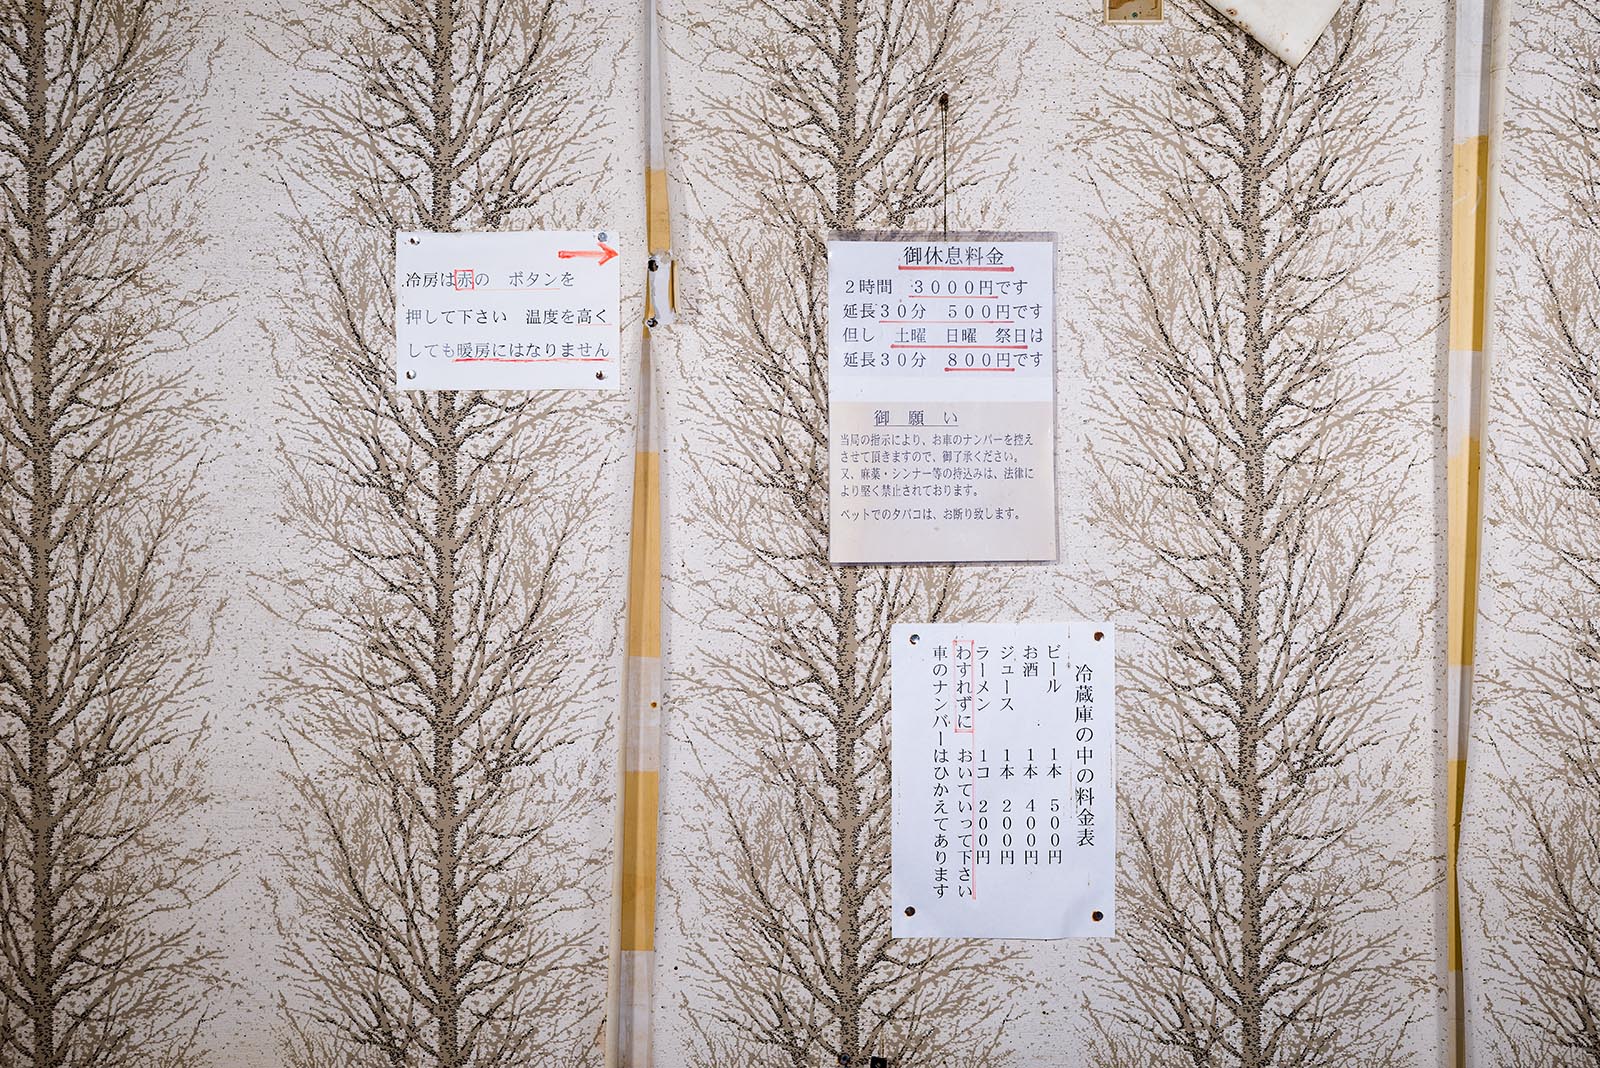 冷房は赤の　ボタンを
押して下さい　温度を高く
しても暖房にはなりません
御休息料金
２時間　３０００円です
延長３０分　５００円です
但し　土曜　日曜　祭日は
延長３０分　８００円です
御　願　い
当局の指示により、お車のナンバーを控え
させて頂きますので、御了承ください。
又、麻薬・シンナー等の持込みは、法律に
より堅く禁止されております。
ベットでのタバコは、お断り致します。
冷蔵庫の中の料金表
ビール　１本　５００円
お酒　１本　４００円
ジュース　１本　２００円
ラーメン　１コ　２００円
わすれずに　おいていって下さい
車のナンバーはひかえてあります